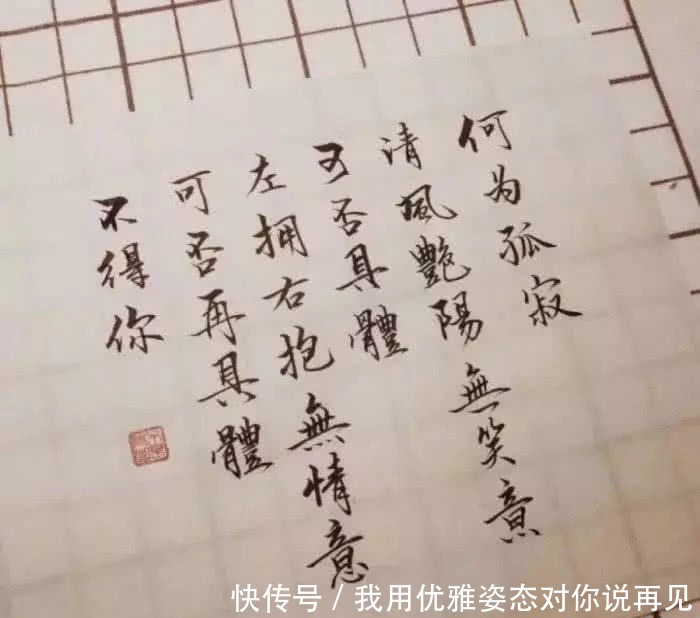 何为孤寂
清風艷陽無笑意
可否具體
左拥右抱無情意
可否再具體
不得你
快传号 / 我用优雅姿态对你说再见